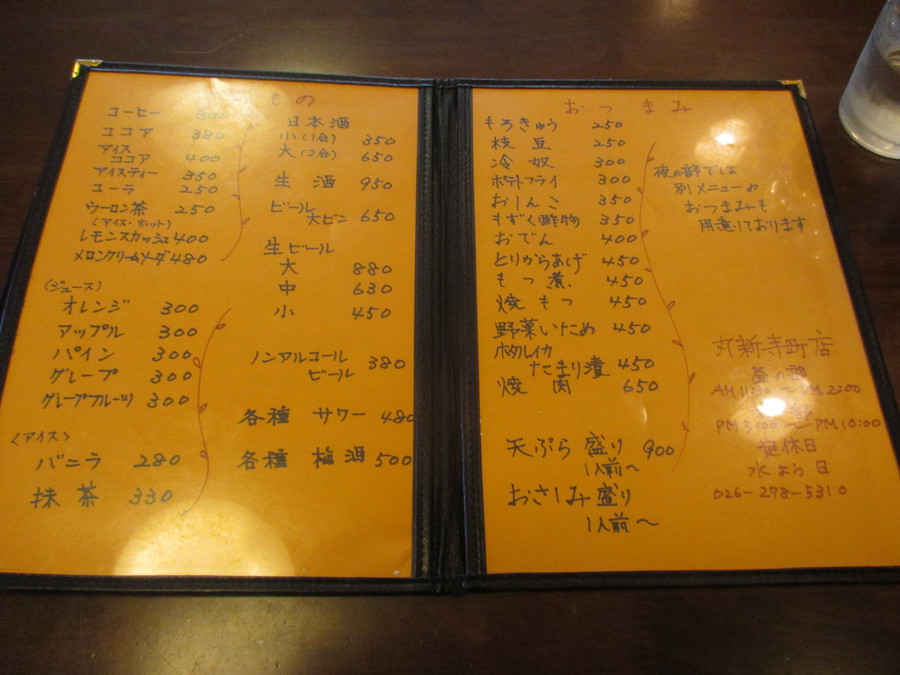 もの
コーヒー
ココア 380
アイス
ココア 400
アイスティー 350
コーラ 250
ウーロン茶 250
(アイス・ホット)
レモンスカッシュ 400
メロンクリームソーダ 480
(ジュース)
オレンジ 300
アップル 300
パイン 300
グレープ 300
グレープフルーツ 300
<アイス>
バニラ 280
抹茶 330
日本酒
小(1合) 350
大(2合) 650
生酒 950
ビール
大ビン 650
生ビール
大 880
中 630
小 450
ノンアルコール
ビール 380
各種 サワー 480
各種 梅酒 500
おつまみ
もろきゅう 250
枝豆 250
冷奴 300
ポテトフライ 300
おしんこ 350
もずく酢物 350
おでん 400
とりからあげ 450
もつ煮 450
焼もつ 450
野菜いため 450
ホタルイカ
たまり漬 450
焼肉 650
天ぷら盛り 900
1人前〜
おさしみ盛り
1人前〜
夜の部では
別メニューや
おつまみも
用意しております
丸新寺町店
昼の部
2:00
PM 5:00 〜 PM 10:00
定休日
水よう日
026-278-5310